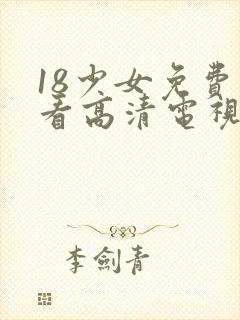 18少女免費
看高清電視
李劍青